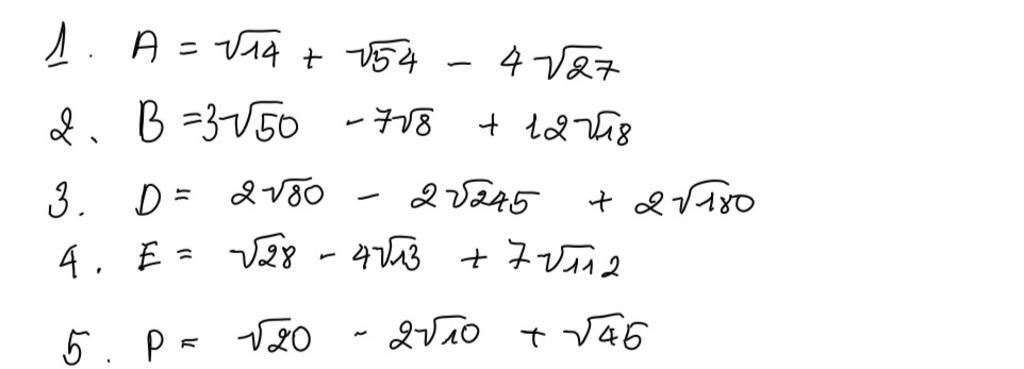 1. A = √14 + √54 - 4√27
2. B = 3√50 - 7√8 + 12√18
3. D = 2√80 - 2√245 + 2√180
4. E = √28 - 4√13 + 7√112
5. P = √20 - 2√10 + √45